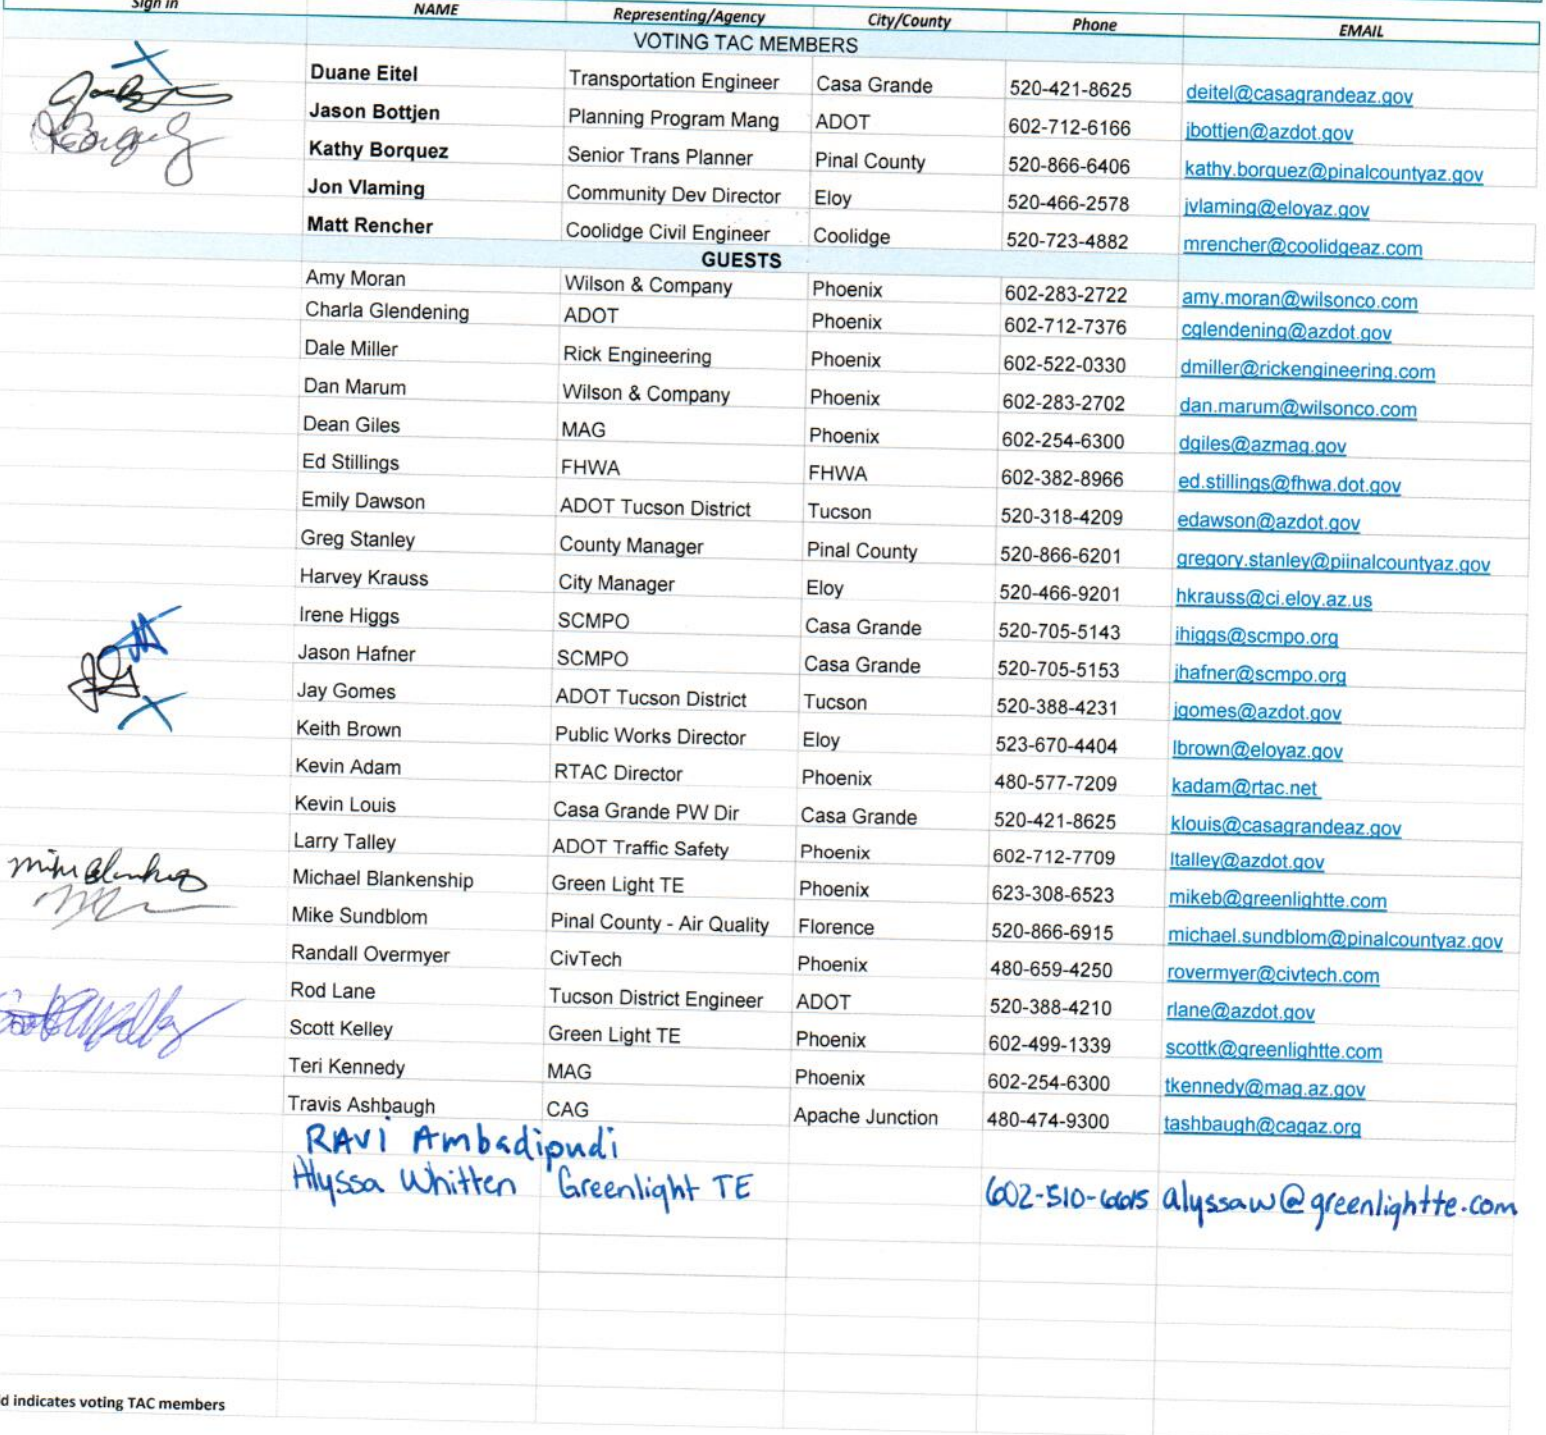 Sign in NAME Representing/Agency City/County Phone EMAIL
VOTING TAC MEMBERS
Duane Eitel Transportation Engineer Casa Grande 520-421-8625 deitel@casagrandeaz.gov
Jason Bottjen Planning Program Mang ADOT 602-712-6166 jbottjen@azdot.gov
Kathy Borquez Senior Trans Planner Pinal County 520-866-6406 kathy.borquez@pinalcountyaz.gov
Jon Vlaming Community Dev Director Eloy 520-466-2578 jvlaming@eloyaz.gov
Matt Rencher Coolidge Civil Engineer Coolidge 520-723-4882 mrencher@coolidgeaz.com
GUESTS
Amy Moran Wilson & Company Phoenix 602-283-2722 amy.moran@wilsonco.com
Charla Glendening ADOT Phoenix 602-712-7376 cglendening@azdot.gov
Dale Miller Rick Engineering Phoenix 602-522-0330 dmiller@rickengineering.com
Dan Marum Wilson & Company Phoenix 602-283-2702 dan.marum@wilsonco.com
Dean Giles MAG Phoenix 602-254-6300 dgiles@azmag.gov
Ed Stillings FHWA FHWA 602-382-8966 ed.stillings@fhwa.dot.gov
Emily Dawson ADOT Tucson District Tucson 520-318-4209 edawson@azdot.gov
Greg Stanley County Manager Pinal County 520-866-6201 gregory.stanley@piinalcountyaz.gov
Harvey Krauss City Manager Eloy 520-466-9201 hkrauss@ci.eloy.az.us
Irene Higgs SCMPO Casa Grande 520-705-5143 ihiggs@scmpo.org
Jason Hafner SCMPO Casa Grande 520-705-5153 jhafner@scmpo.org
Jay Gomes ADOT Tucson District Tucson 520-388-4231 jgomes@azdot.gov
Keith Brown Public Works Director Eloy 523-670-4404 lbrown@eloyaz.gov
Kevin Adam RTAC Director Phoenix 480-577-7209 kadam@rtac.net
Kevin Louis Casa Grande PW Dir Casa Grande 520-421-8625 klouis@casagrandeaz.gov
Larry Talley ADOT Traffic Safety Phoenix 602-712-7709 ltalley@azdot.gov
Mike Blankenship Michael Blankenship Green Light TE Phoenix 623-308-6523 mikeb@greenlightte.com
Mike Sundblom Pinal County - Air Quality Florence 520-866-6915 michael.sundblom@pinalcountyaz.gov
Randall Overmyer CivTech Phoenix 480-659-4250 rovermyer@civtech.com
Rod Lane Tucson District Engineer ADOT 520-388-4210 rlane@azdot.gov
Scott Kelley Green Light TE Phoenix 602-499-1339 scottk@greenlightte.com
Teri Kennedy MAG Phoenix 602-254-6300 tkennedy@mag.az.gov
Travis Ashbaugh CAG Apache Junction 480-474-9300 tashbaugh@cagaz.org
RAVi Ambadipudi
Alyssa Whitten Greenlight TE 602-510-6615 alyssaw@greenlightte.com
d indicates voting TAC members